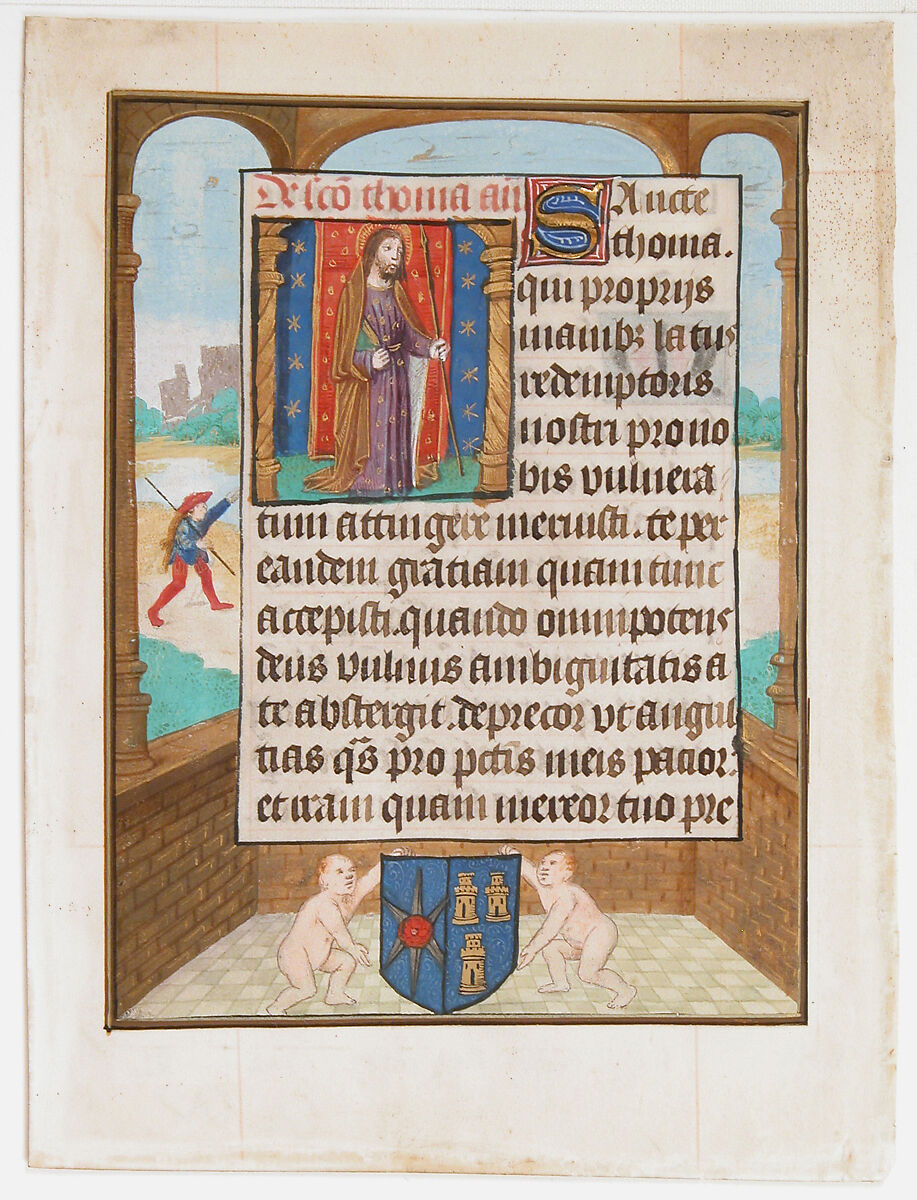 De scō thoma añ SAncte
thoma.
qui proprijs
manibꝫ latus
redemptoris
nostri pro no
bis vulnera
tum attingere meruisti. te per
eandem gratiam quam tunc
accepisti. quando omnipotens
deus vulnus ambiguitatis a
te abstergit. deprecor vt angus
tias q̄s pro pctīs meis pacior.
et iram quam mereor tuo pre